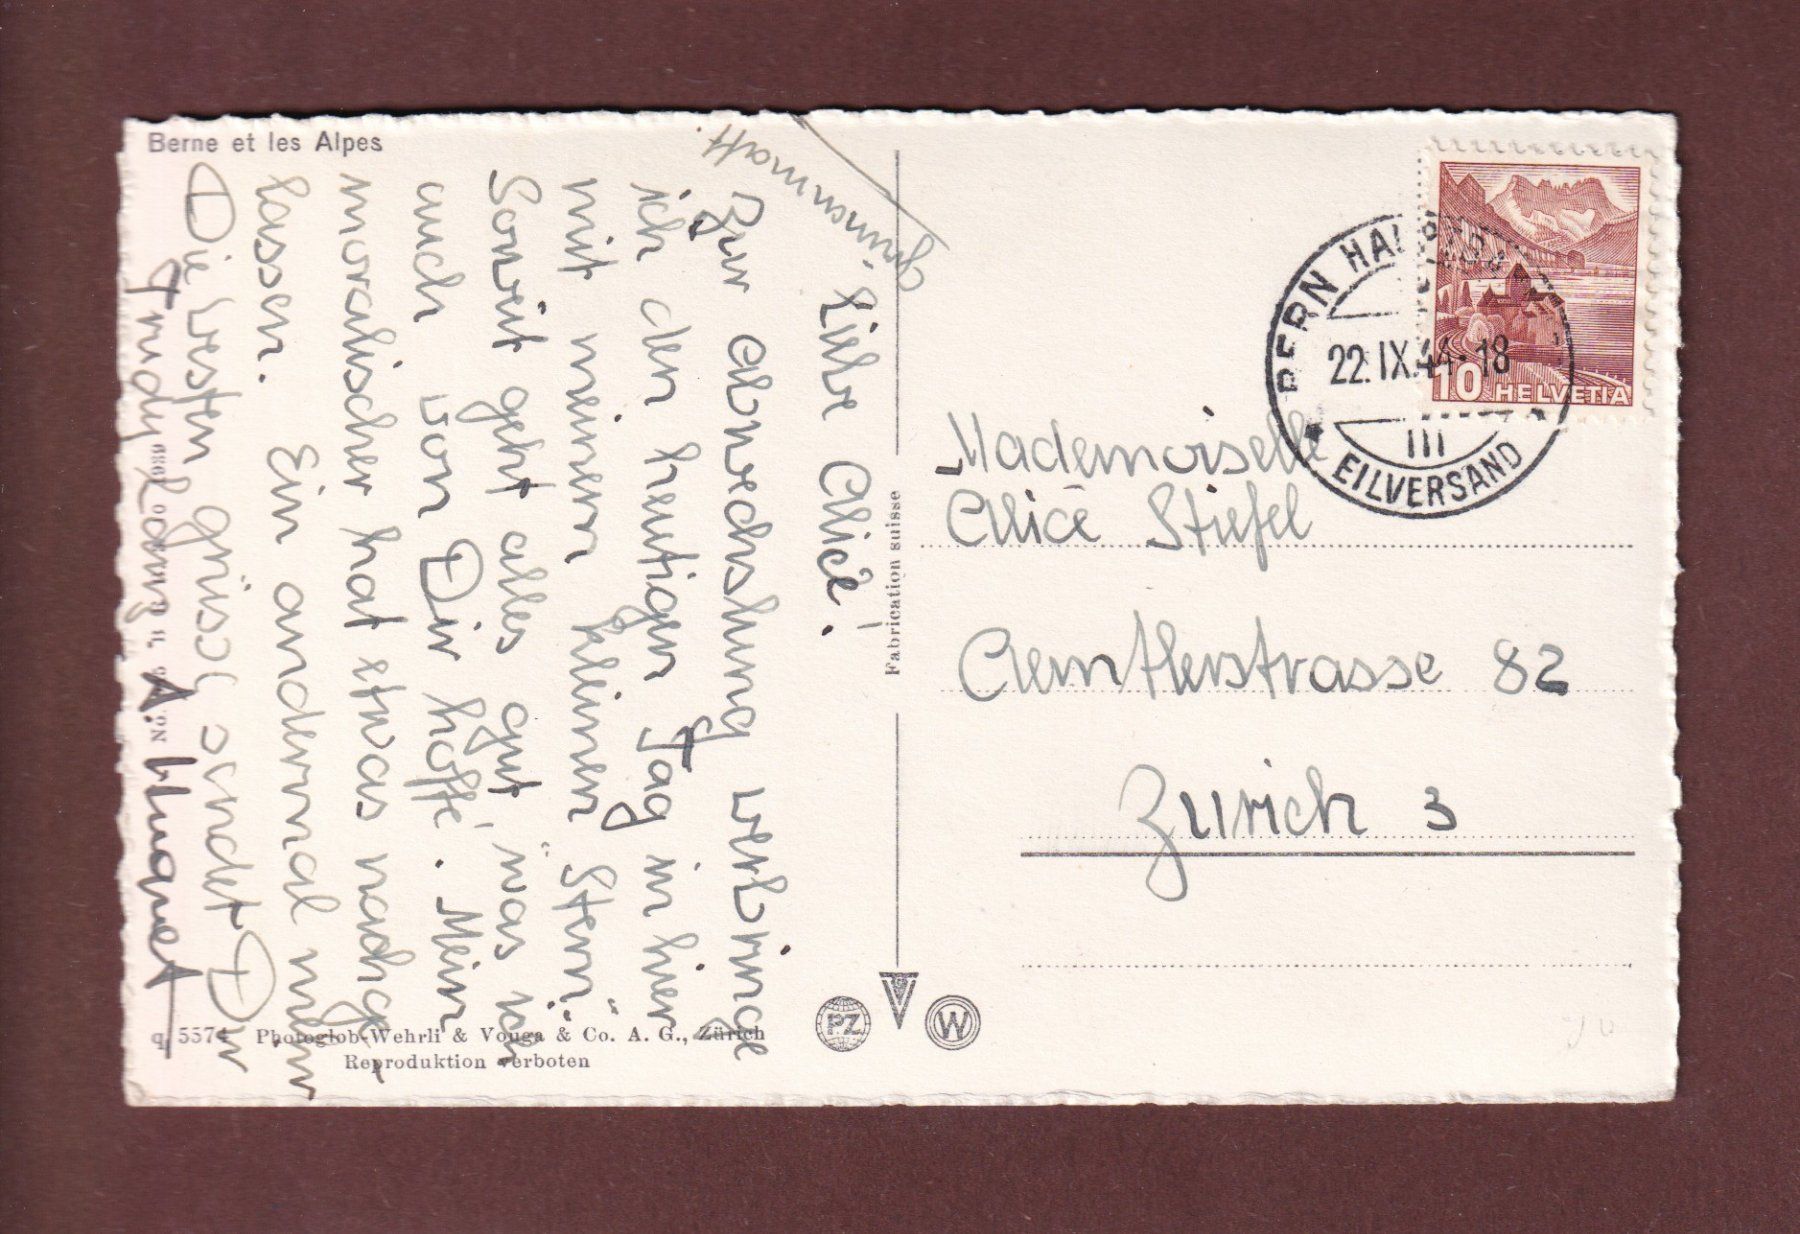 Berne et les Alpes
Liebe Alice!
Zur Abwechslung verbringe
ich den heutigen Tag in hier
mit meinem kleinen "Stern".
Soweit geht alles gut, was ich
auch von Dir hoffe. Mein
moralischer hat etwas nachge-
lassen. Ein andermal mehr
Die besten Grüsse sendet Dir
Trudy
Fabrication suisse
BERN
22.IX.44-18
III
EILVERSAND
10 HELVETIA
Mademoiselle
Alice Stiefel
Aemtlerstrasse 82
Zürich 3
PZ
W
5574 Photoglob-Wehrli & Vouga & Co. A. G., Zürich
Reproduktion verboten